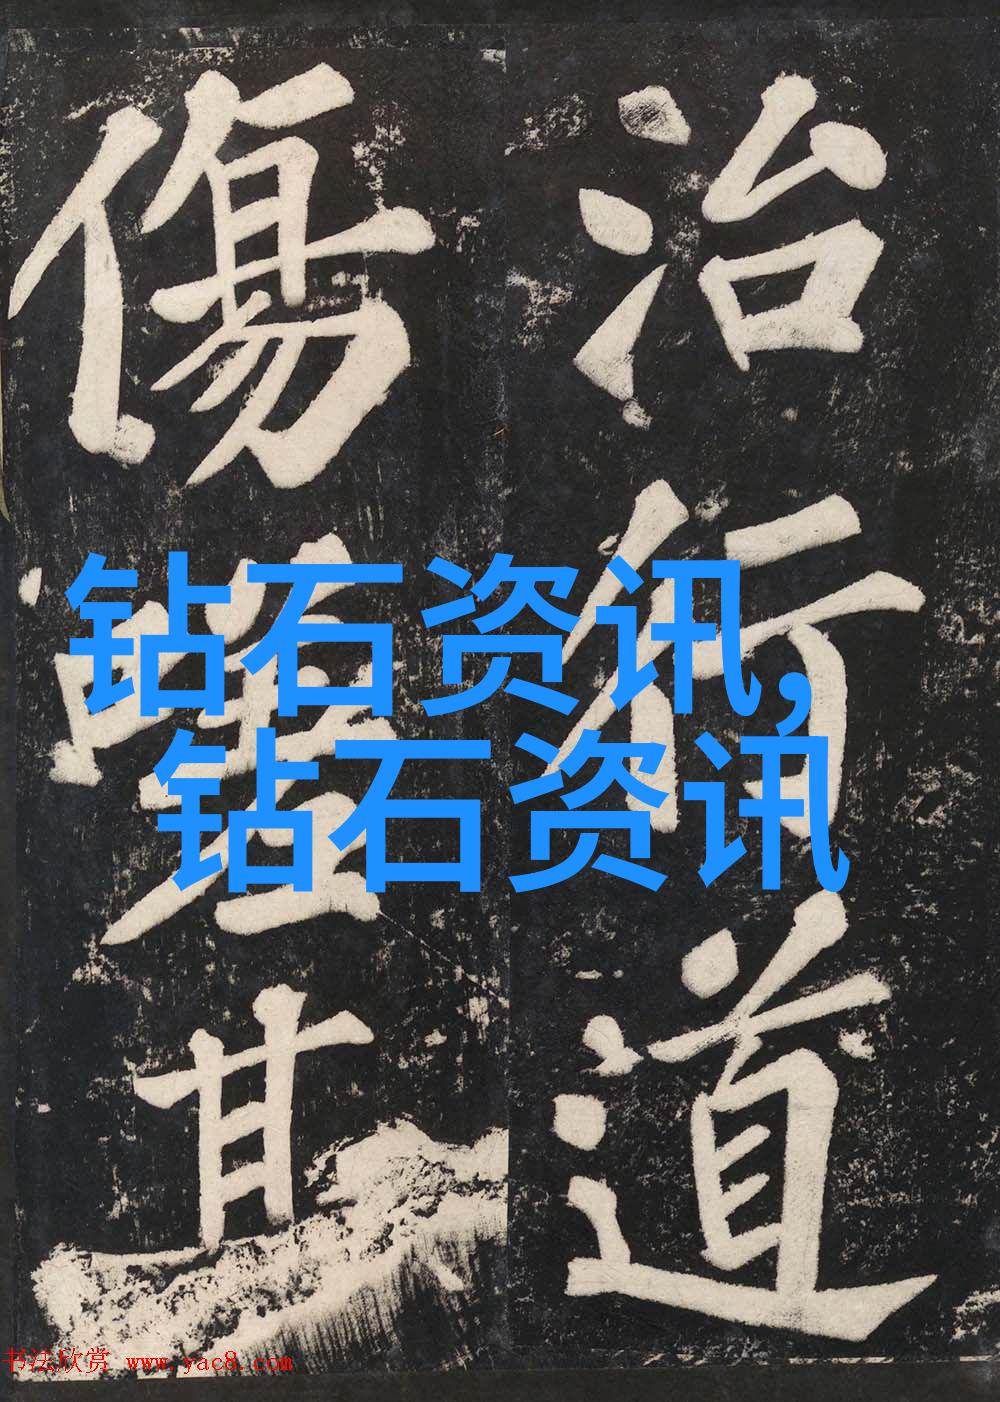 治行道
傷其
钻石资讯,
钻石资讯
书法欣赏 www.yac8.com